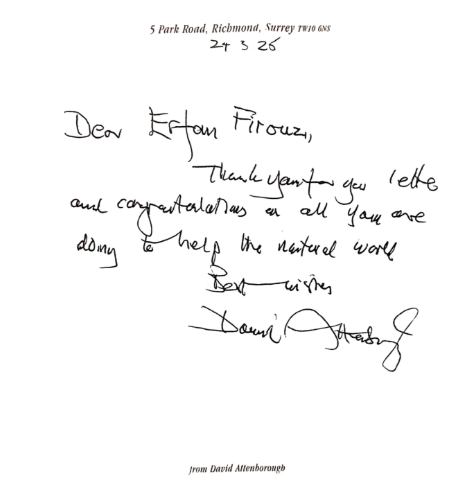 5 Park Road, Richmond, Surrey TW10 6NS
24 3 25
Dear Erfan Firouzi,
Thank you for your letter
and congratulations on all you are
doing to help the natural world
Best wishes
David Attenborough
from David Attenborough